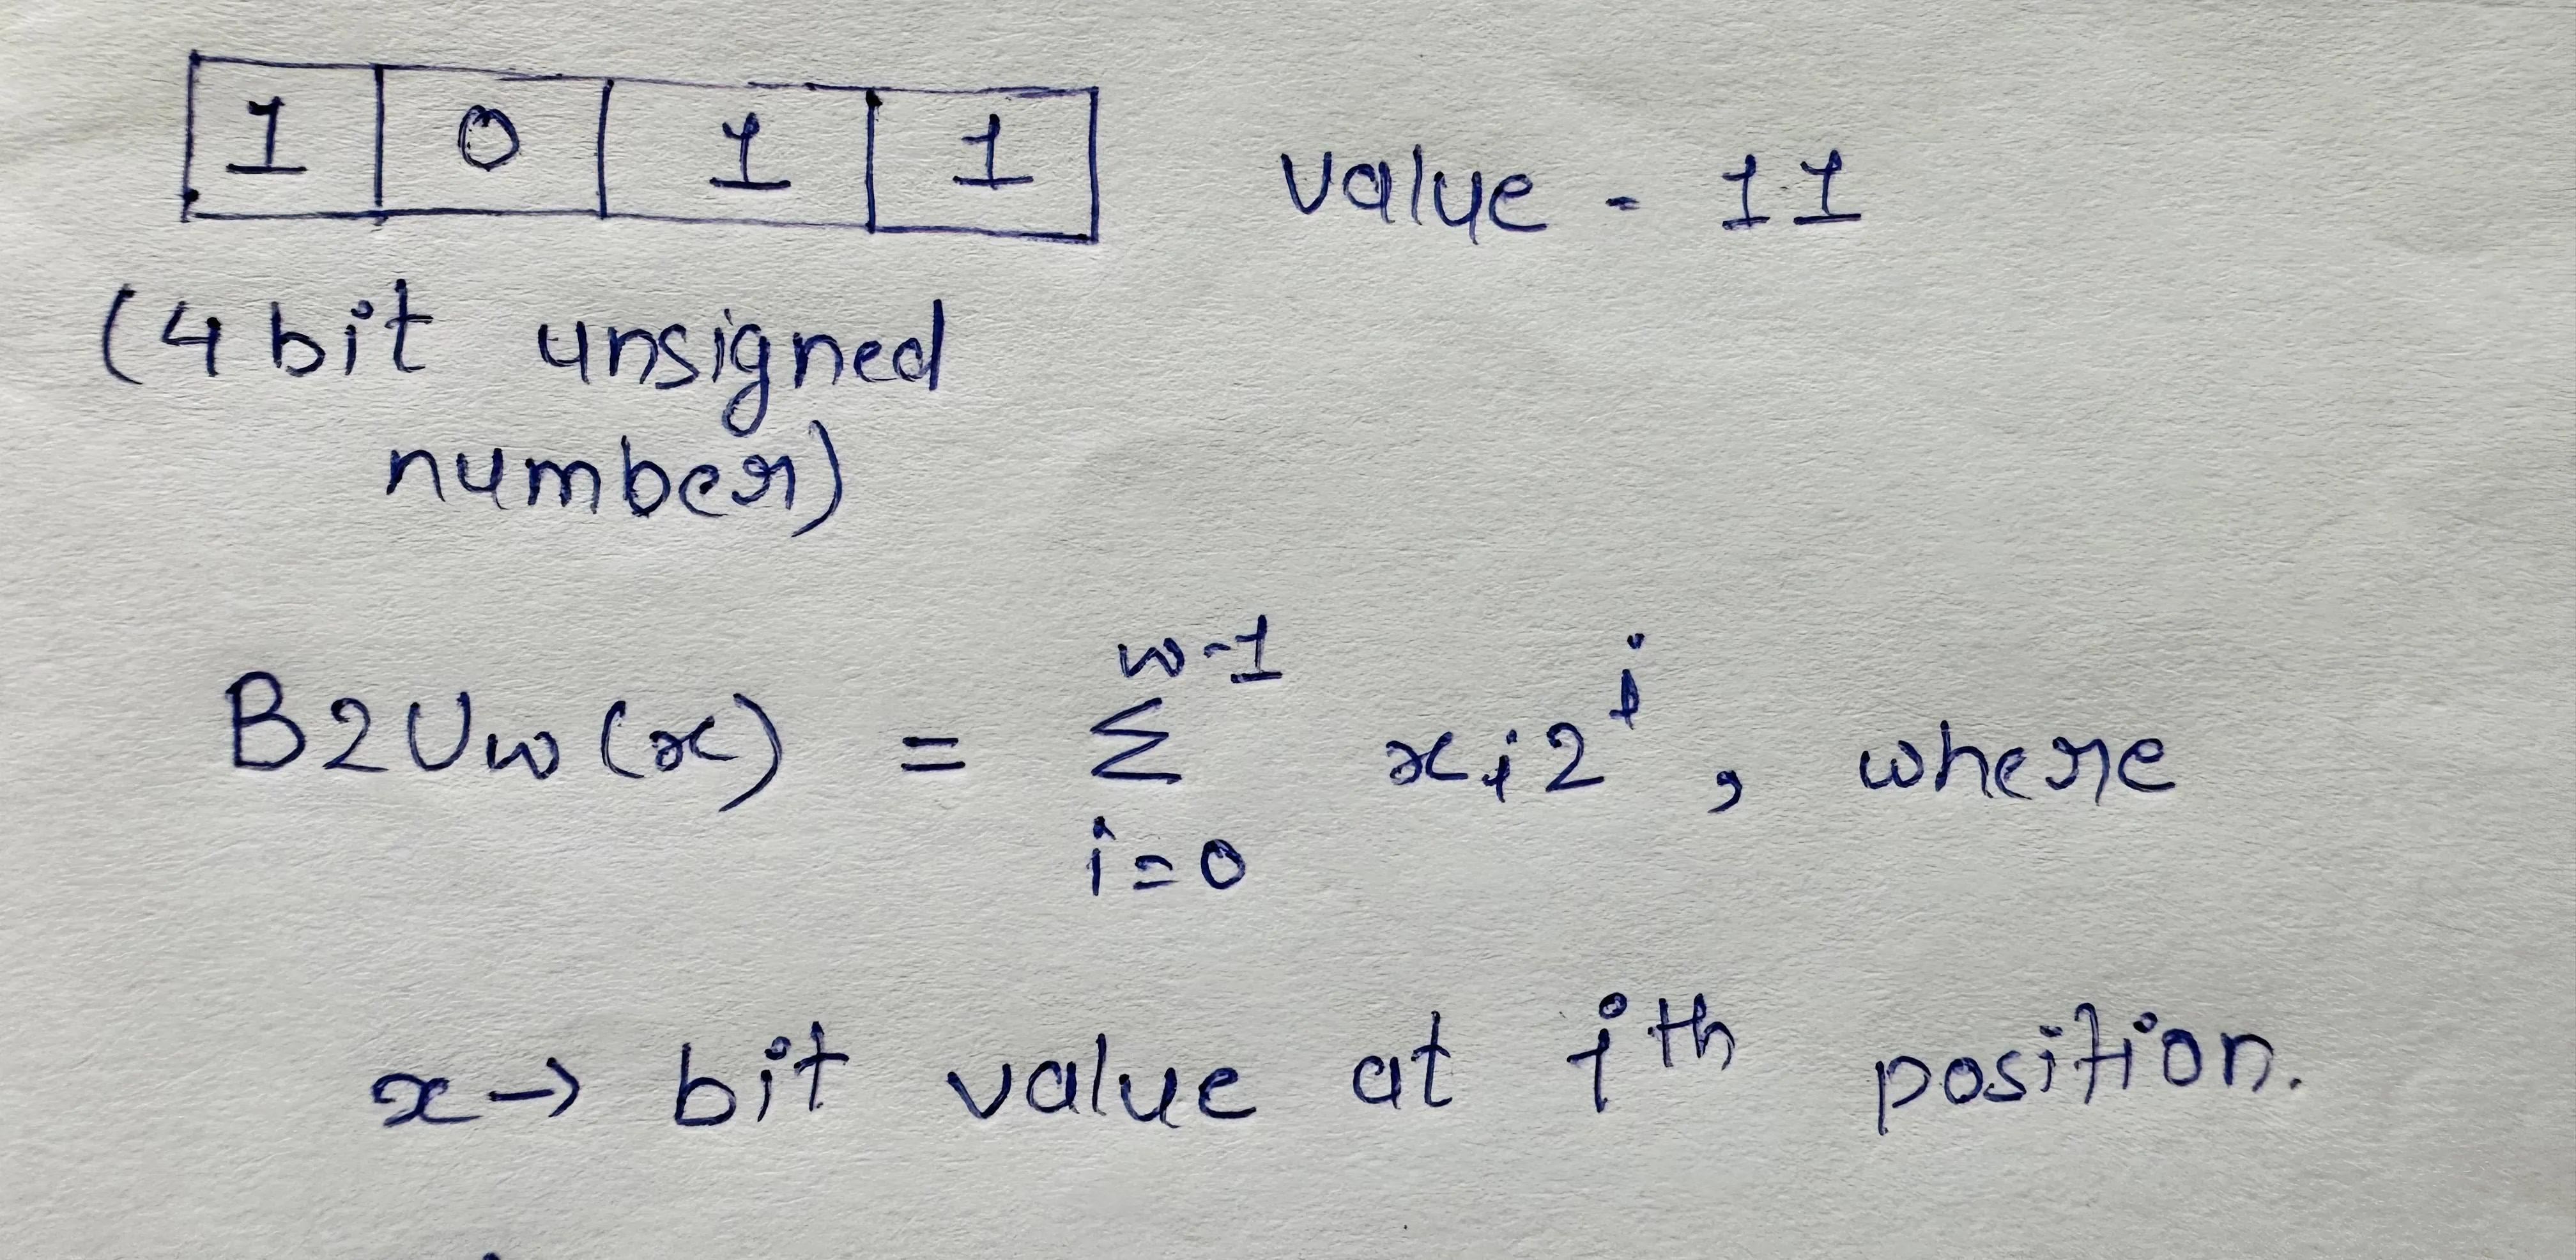 1 0 1 1 value - 11
(4 bit unsigned
number)
B2Uw(x) = Σ_{i=0}^{w-1} x_i 2^i, where
x → bit value at i^th position.